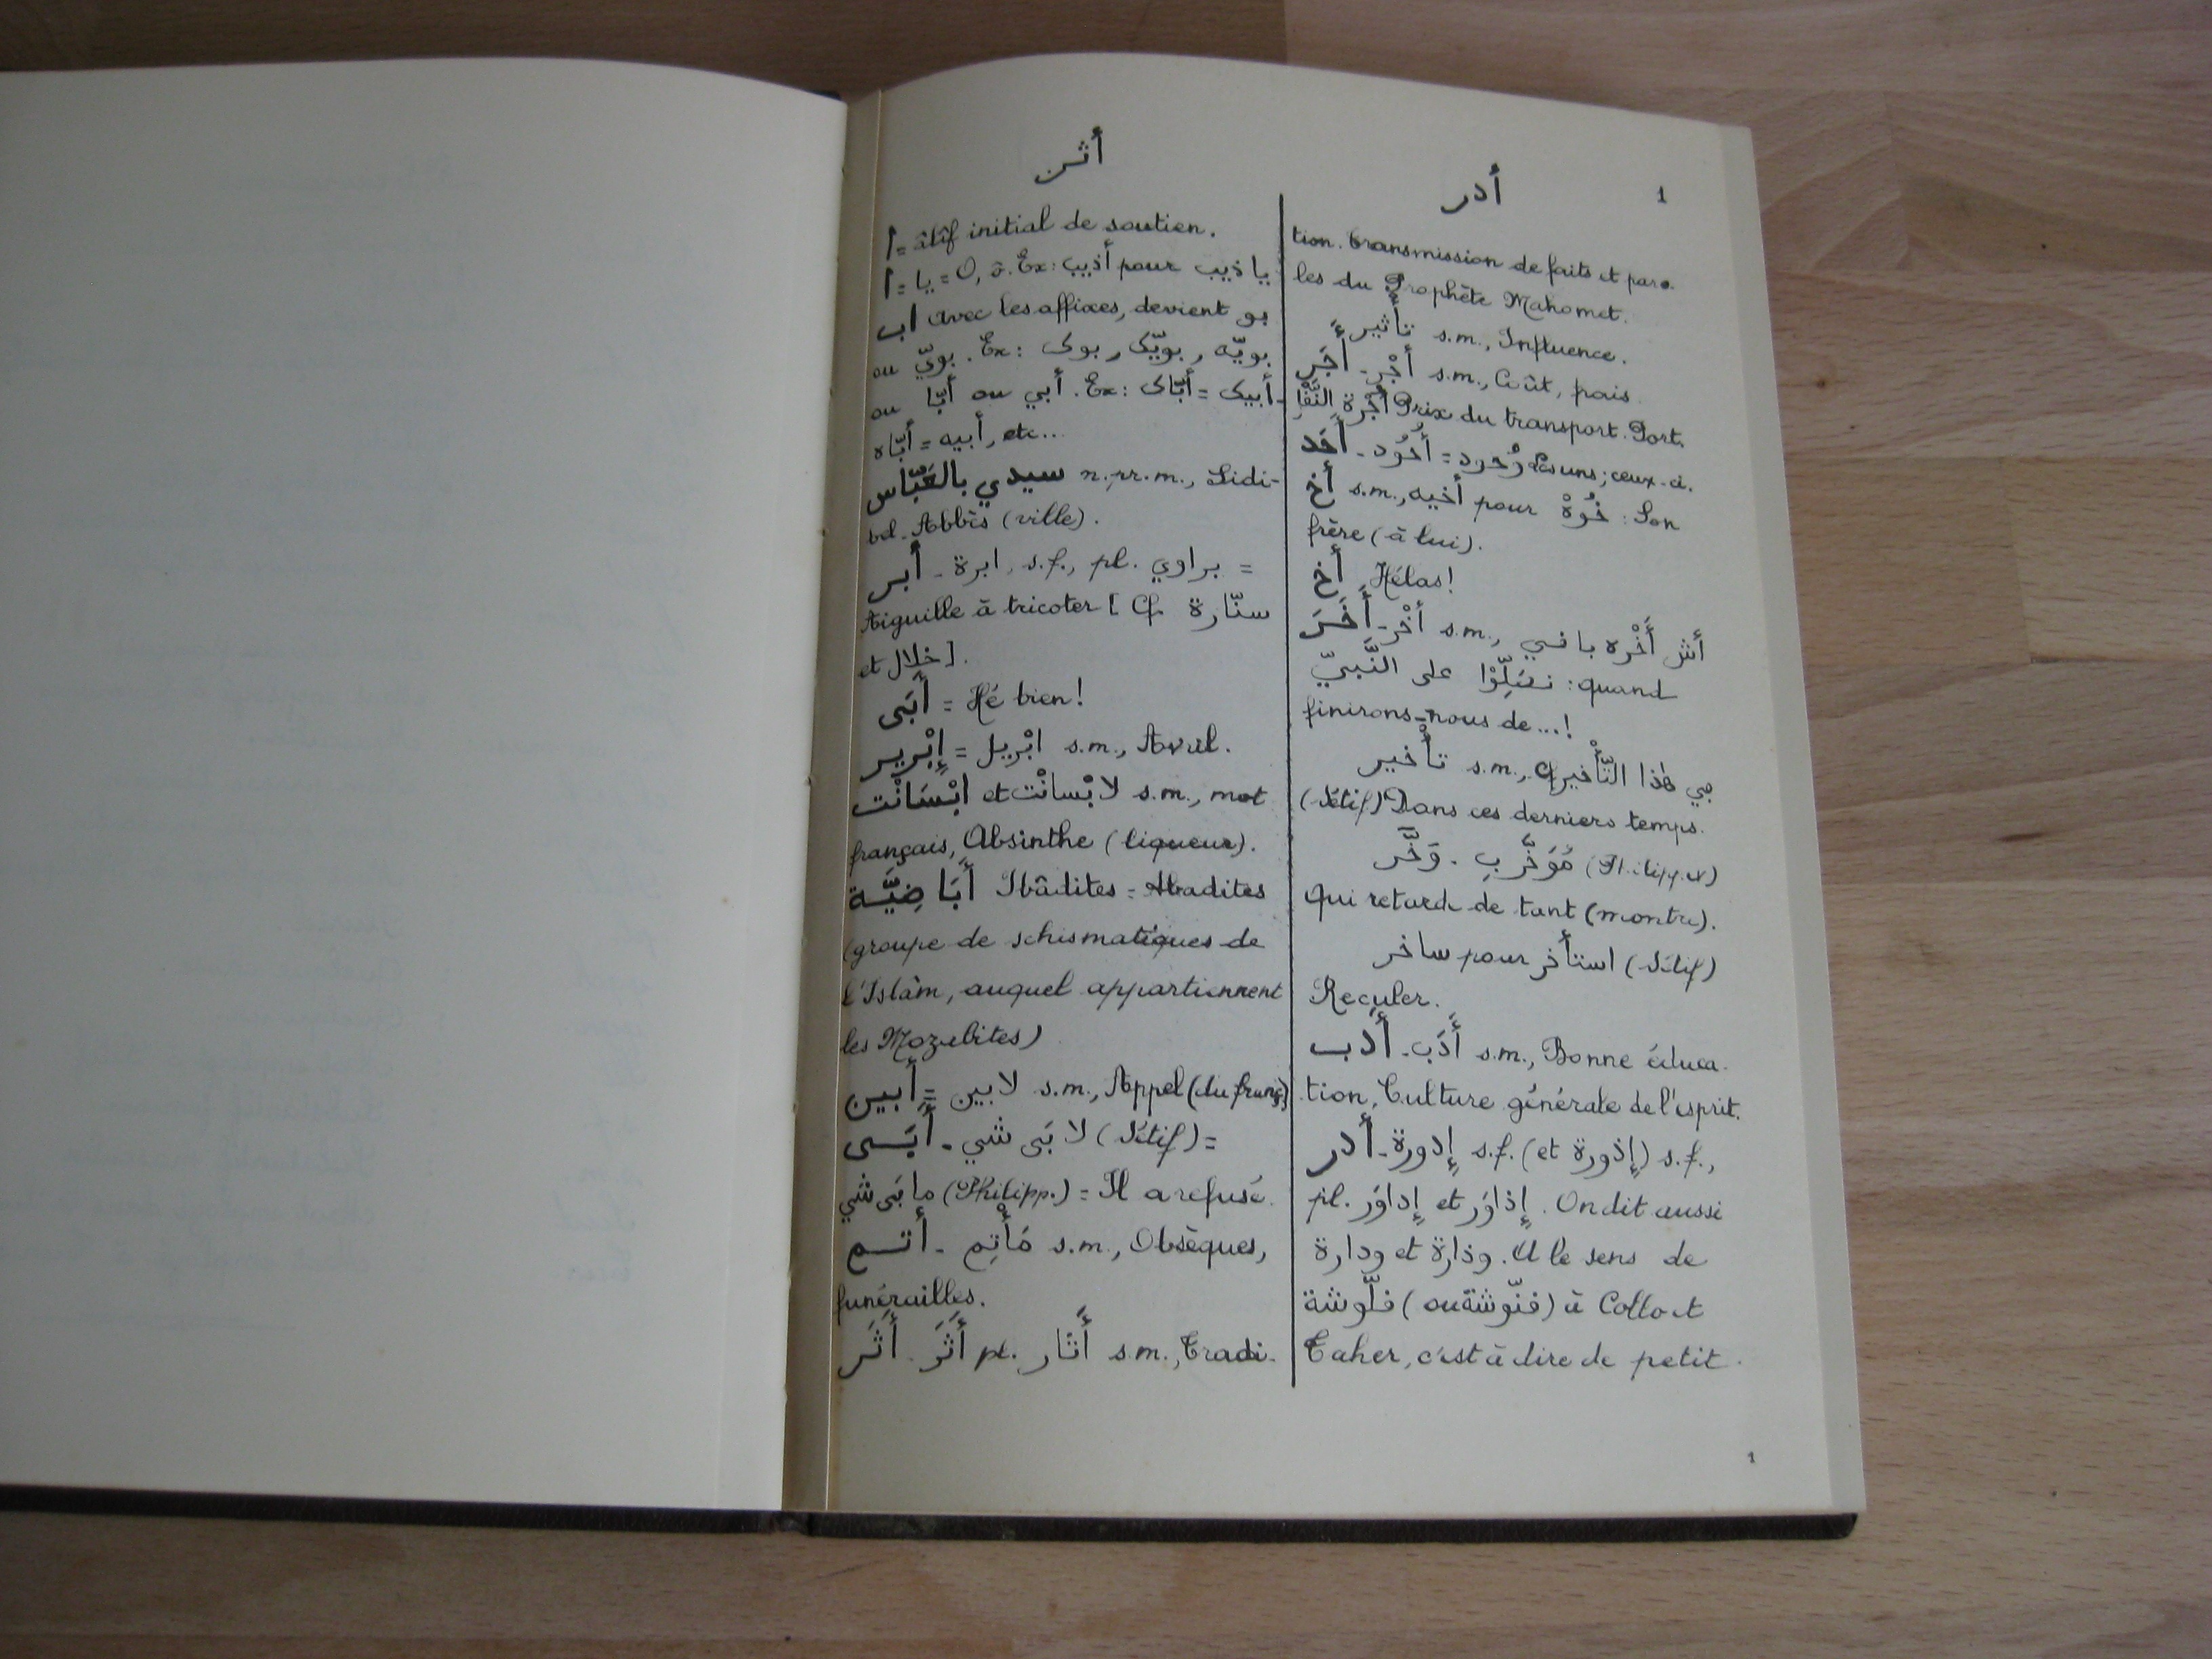 أثر
أدر
1
أ = âlîf initial de soutien.
أ = يا = O, ô. Ex: أذيب pour يا ذيب
اب avec les affixes, devient بو
ou بويّ. Ex: بوك, بويّك, بويّه
ou أبّا ou أبي. Ex: أبّاك = أبيك -
أبّاه = أبيه, etc...
سيدي بالعَبّاس n.pr.m., Sidi-
bel-Abbès (ville).
أبر - ابرة, s.f., pl. براوي =
Aiguille à tricoter [Cf. سنّارة
et خلال].
أَبَى = Hé bien!
إبْرير = ابْريل s.m., Avril.
ابْسَانْت et لابْسانْت s.m., mot
français, Absinthe (liqueur).
أَبَاضِيَّة Ibâdites = Abadites
(groupe de schismatiques de
l'Islâm, auquel appartiennent
les Mozabites)
أبين = لابين s.m., Appel (du franç)
أَبَى - لا بَى شي (Sétif) =
ما بَى شي (Philipp.) = Il a refusé.
أتم - مَأْتِم s.m., Obsèques,
funérailles.
أَثَر - أَثَر pl. أَثَار s.m., Tradi-
tion. transmission de faits et paro-
les du Prophète Mahomet.
تأثير s.m., Influence.
أَجَر - أَجْر s.m., Coût, frais.
أُجْرة Prix du transport. Port.
أَحَد - أُحُود = وُحود Les uns; ceux-ci.
أخ s.m., أخيه pour خُوهْ : Son
frère (à lui).
أخ Hélas!
أَخَر - أَخْر s.m., أش أَخْره با
على النَّبيّ : quand
finirons-nous de...!
تأخير s.m., في هذا التّأخير
(Sétif) Dans ces derniers temps.
وَخَّر - مُوَخَّر بِ (Philippev)
Qui retarde de tant (montre).
ساخر pour استأخر (Sétif)
Reculer.
أدب - أَدَب s.m., Bonne éduca-
tion, Culture générale de l'esprit.
أدر - إدورة s.f. (et إذورة) s.f.,
pl. إداوَر et إذاوَر. On dit aussi
ودارة et وذارة. A le sens de
فلّوشة (ou فنّوشة) à Collo et
Taher, c'est à dire de petit
1